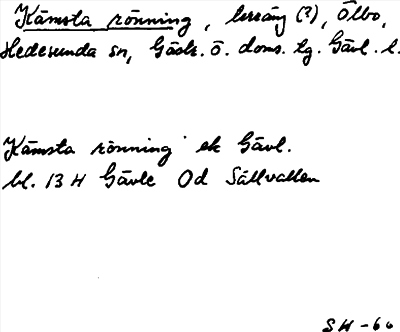 Kämsta rönning, lersäng (?), Ölbo,
Hedesunda sn, Gästr. ö. doms. tg. Gävl. l.
Kämsta rönning ek Gävl.
bl. 13 H Gävle Od Sällvallen
SH-66